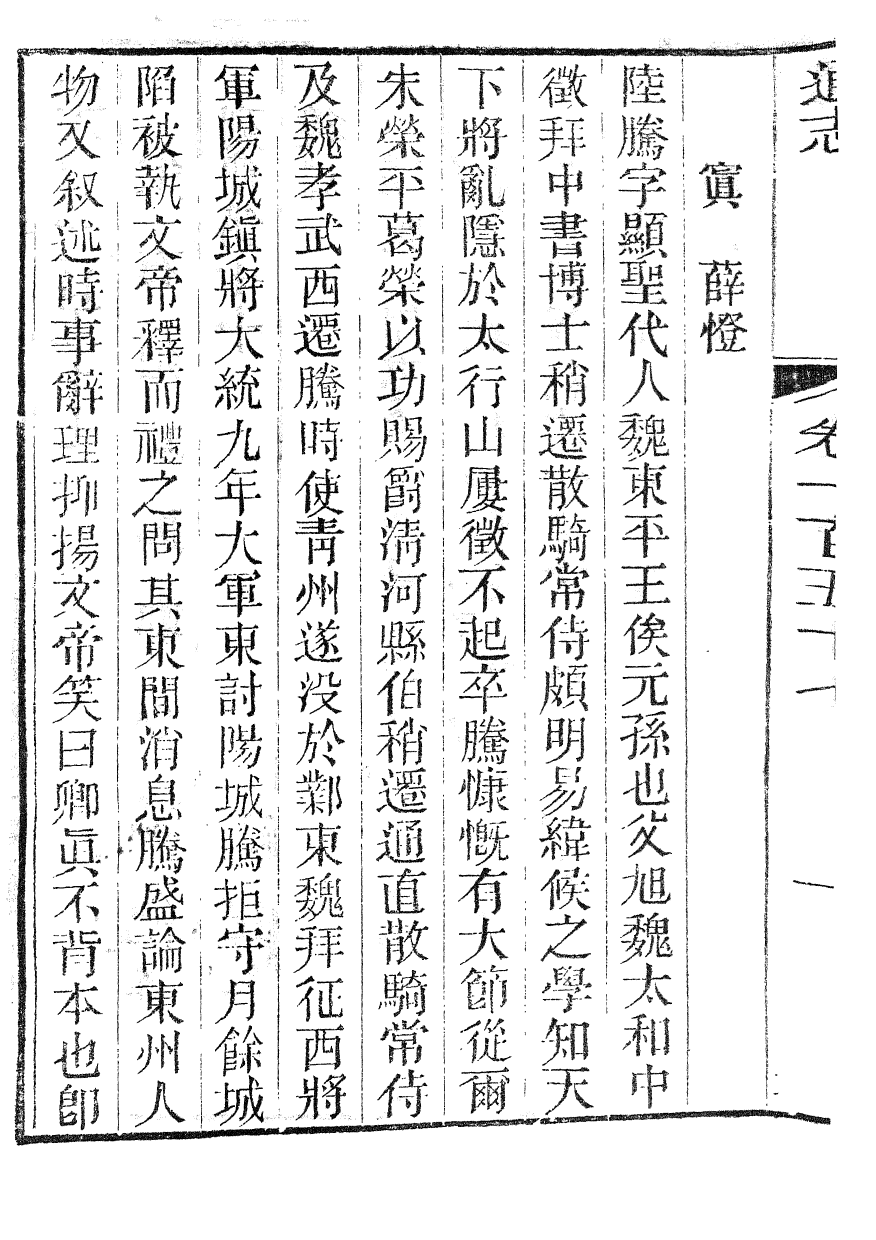 通志 卷一百五十七 一
寘 薛憕
陸騰字顯聖代人魏東平王俟元孫也父旭魏太和中
徵拜中書博士稍遷散騎常侍頗明易緯候之學知天
下將亂隱於太行山屢徵不起卒騰慷慨有大節從爾
朱榮平葛榮以功賜爵清河縣伯稍遷通直散騎常侍
及魏孝武西遷騰時使青州遂没於鄴東魏拜征西將
軍陽城鎭將大統九年大軍東討陽城騰拒守月餘城
陷被執文帝釋而禮之問其東間消息騰盛論東州人
物又叙述時事辭理抑揚文帝笑曰卿眞不背本也卽